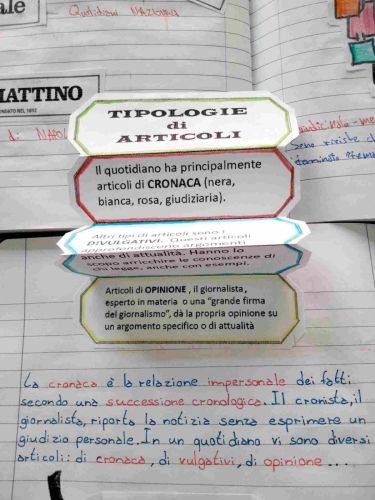 ale
Quotidiani NAZIONA
MATTINO
FONDATO NEL 1892
di NAPOL
TIPOLOGIE
di
ARTICOLI
Sono riviste
Il quotidiano ha principalmente
articoli di CRONACA (nera,
bianca, rosa, giudiziaria).
Altri tipi di articoli sono i
DIVULGATIVI. Questi articoli
approfondiscono argomenti
anche di attualità. Hanno lo
scopo arricchire le conoscenze di
chi legge, anche con esempi.
Articoli di OPINIONE , il giornalista,
esperto in materia o una "grande firma
del giornalismo", dà la propria opinione su
un argomento specifico o di attualità
La cronaca è la relazione impersonale dei fatti
secondo una successione cronologica. Il cronista, il
giornalista, riporta la notizia senza esprimere un
giudizio personale. In un quotidiano vi sono diversi
articoli: di cronaca, di vulgativi, di opinione...